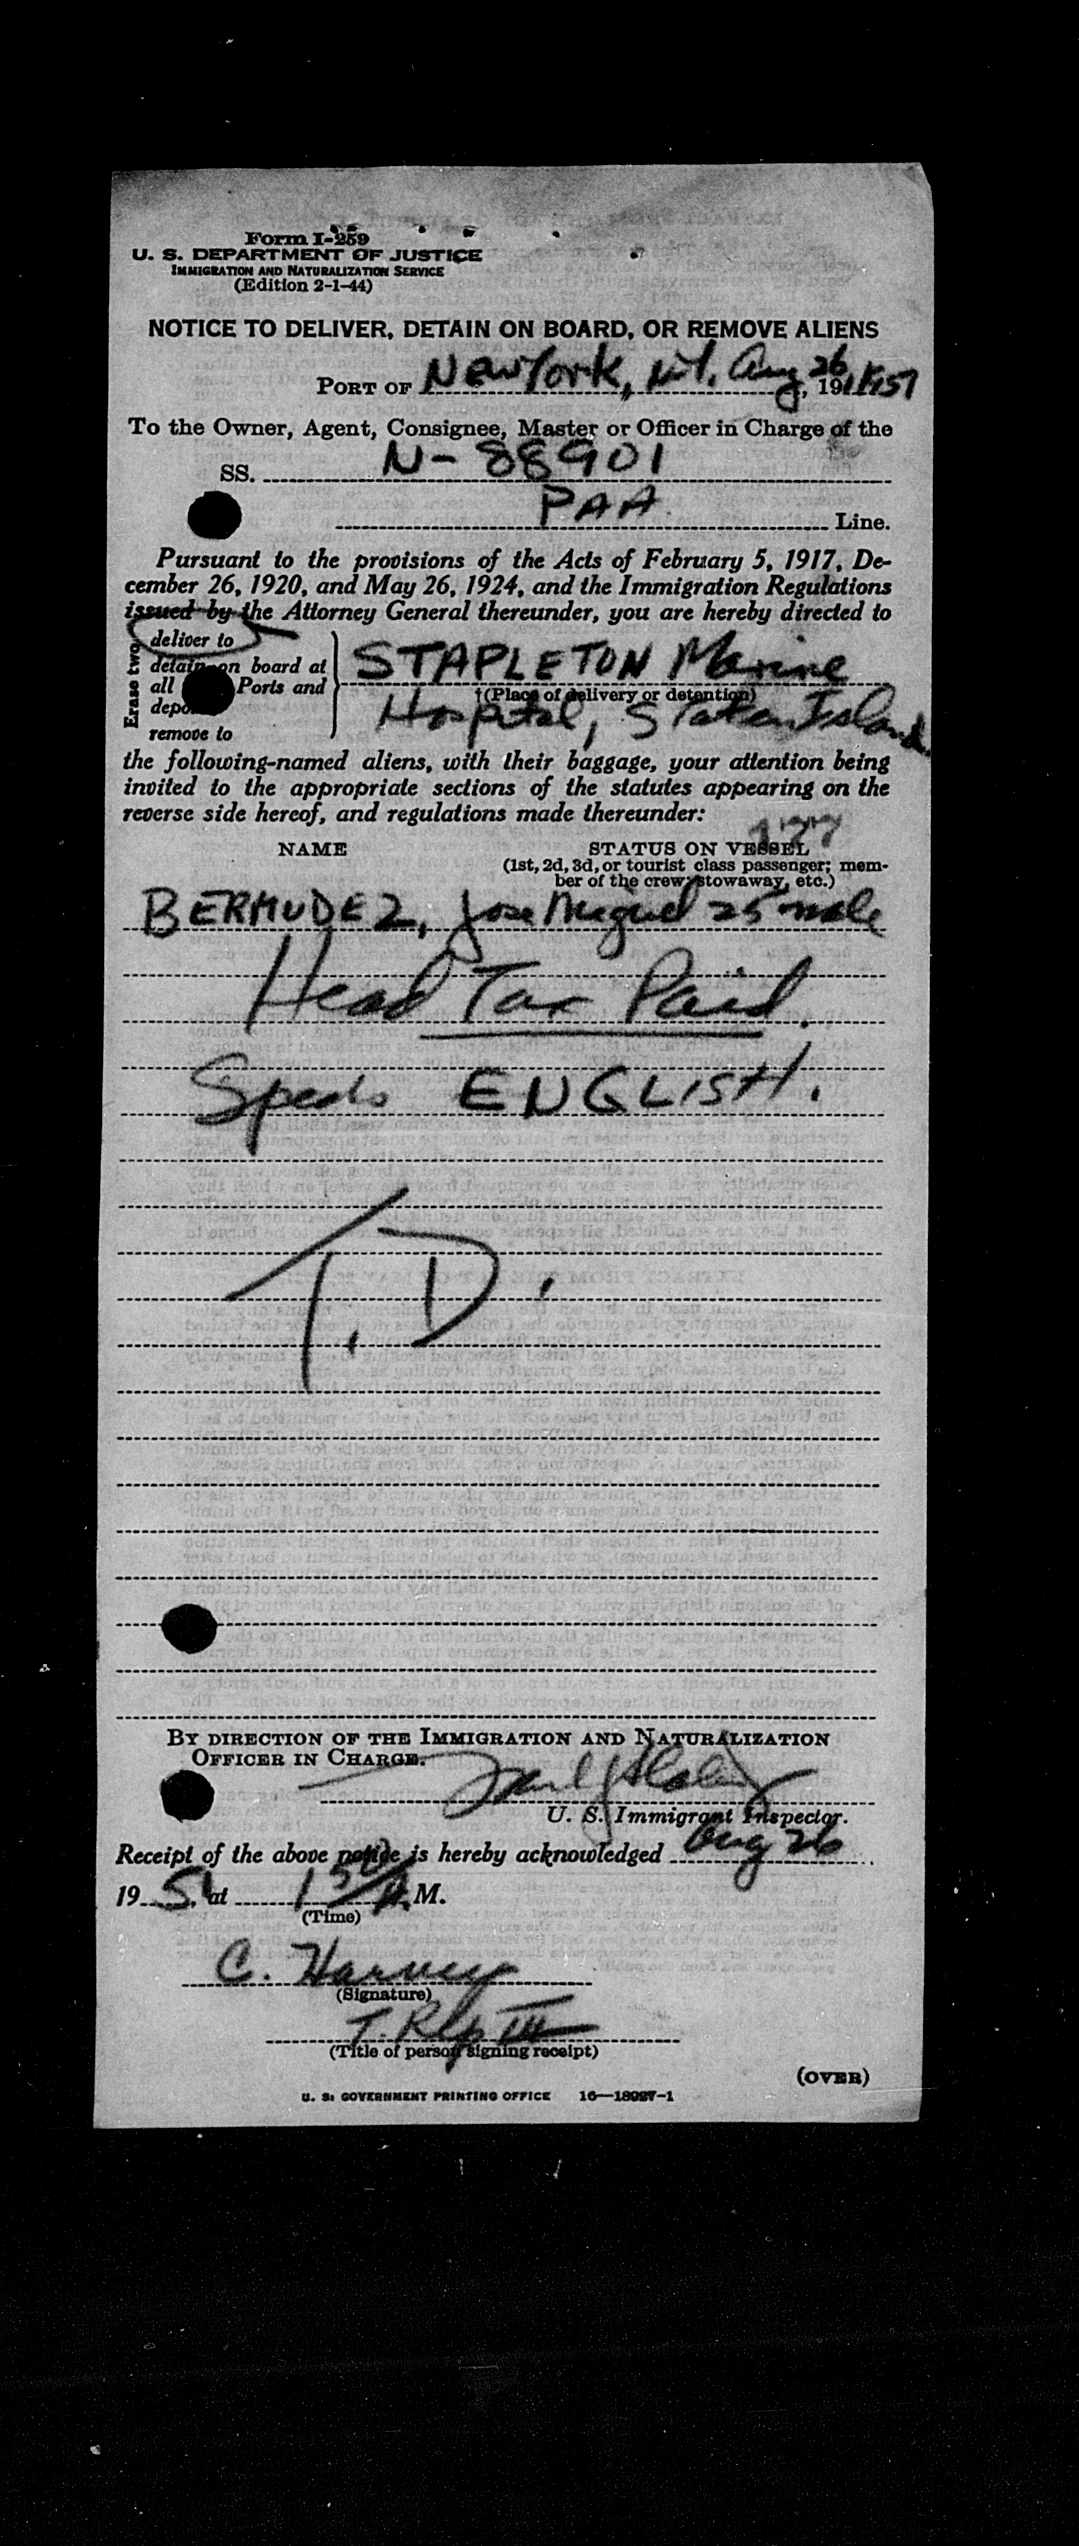 Form I-259
U. S. DEPARTMENT OF JUSTICE
IMMIGRATION AND NATURALIZATION SERVICE
(Edition 2-1-44)
NOTICE TO DELIVER, DETAIN ON BOARD, OR REMOVE ALIENS
PORT OF New York, N.Y. Aug 26, 19
To the Owner, Agent, Consignee, Master or Officer in Charge of the
SS. N-88901
PAA Line.
Pursuant to the provisions of the Acts of February 5, 1917, De-
cember 26, 1920, and May 26, 1924, and the Immigration Regulations
issued by the Attorney General thereunder, you are hereby directed to
Erase two
deliver to
detain on board at
all Ports and
depo
remove to
STAPLETON Marine
†(Place of delivery or detention)
Hospital, Staten Island
the following-named aliens, with their baggage, your attention being
invited to the appropriate sections of the statutes appearing on the
reverse side hereof, and regulations made thereunder:
177
NAME STATUS ON VESSEL
(1st, 2d, 3d, or tourist class passenger; mem-
ber of the crew; stowaway, etc.)
BERMUDEZ, Jose Miguel 25 male
Head Tax Paid.
Speaks ENGLISH.
T. D.
BY DIRECTION OF THE IMMIGRATION AND NATURALIZATION
OFFICER IN CHARGE.
U. S. Immigrant Inspector.
Receipt of the above notice is hereby acknowledged Aug 26
1951 at 150 A.M.
(Time)
C. Harvey
(Signature)
T. Rep III
(Title of person signing receipt)
(OVER)
U. S. GOVERNMENT PRINTING OFFICE 16—18927-1